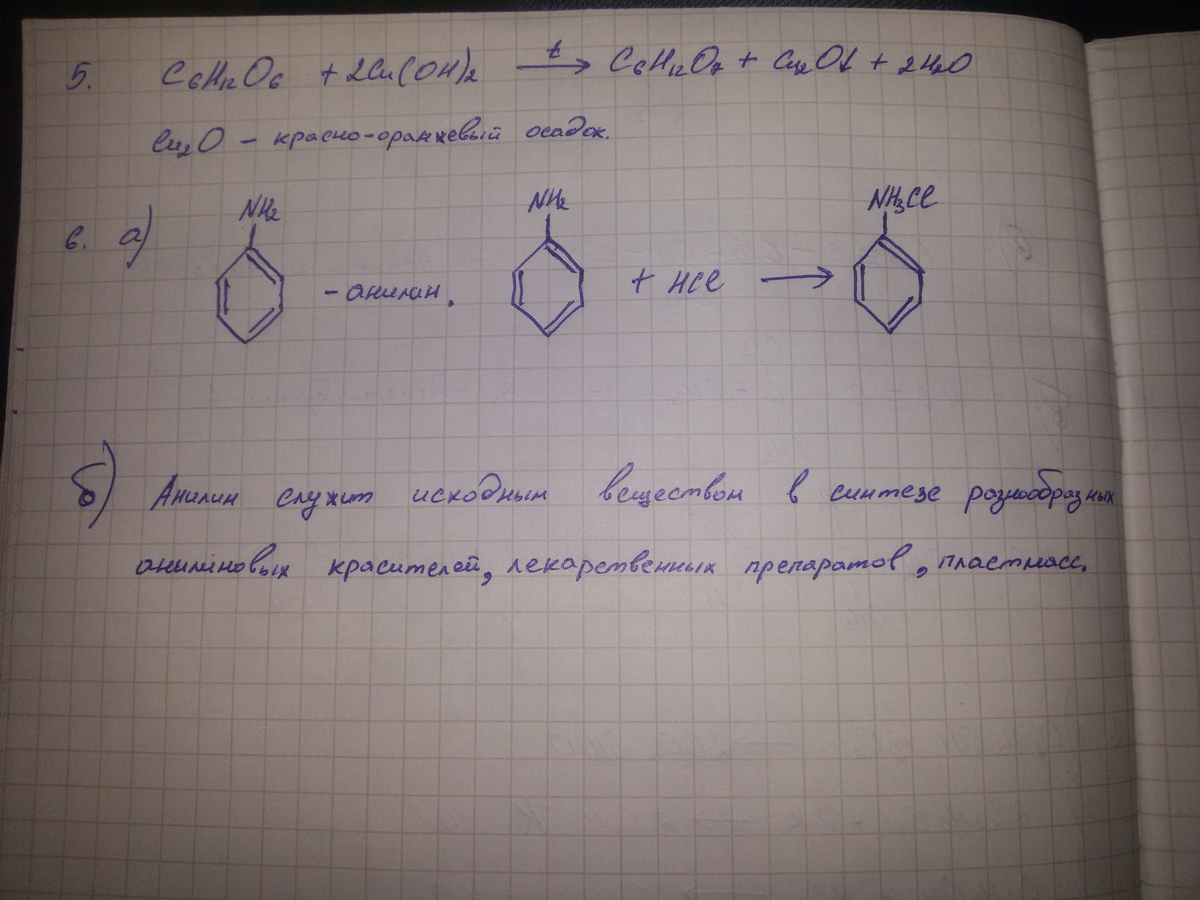 5. C₆H₁₂O₆ + 2Cu(OH)₂ —t→ C₆H₁₂O₇ + Cu₂O↓ + 2H₂O
Cu₂O – красно-оранжевый осадок.
6. а) NH₂ – анилин. NH₂ + HCl ⟶ NH₃Cl
б) Анилин служит исходным веществом в синтезе разнообразных
анилиновых красителей, лекарственных препаратов, пластмасс.